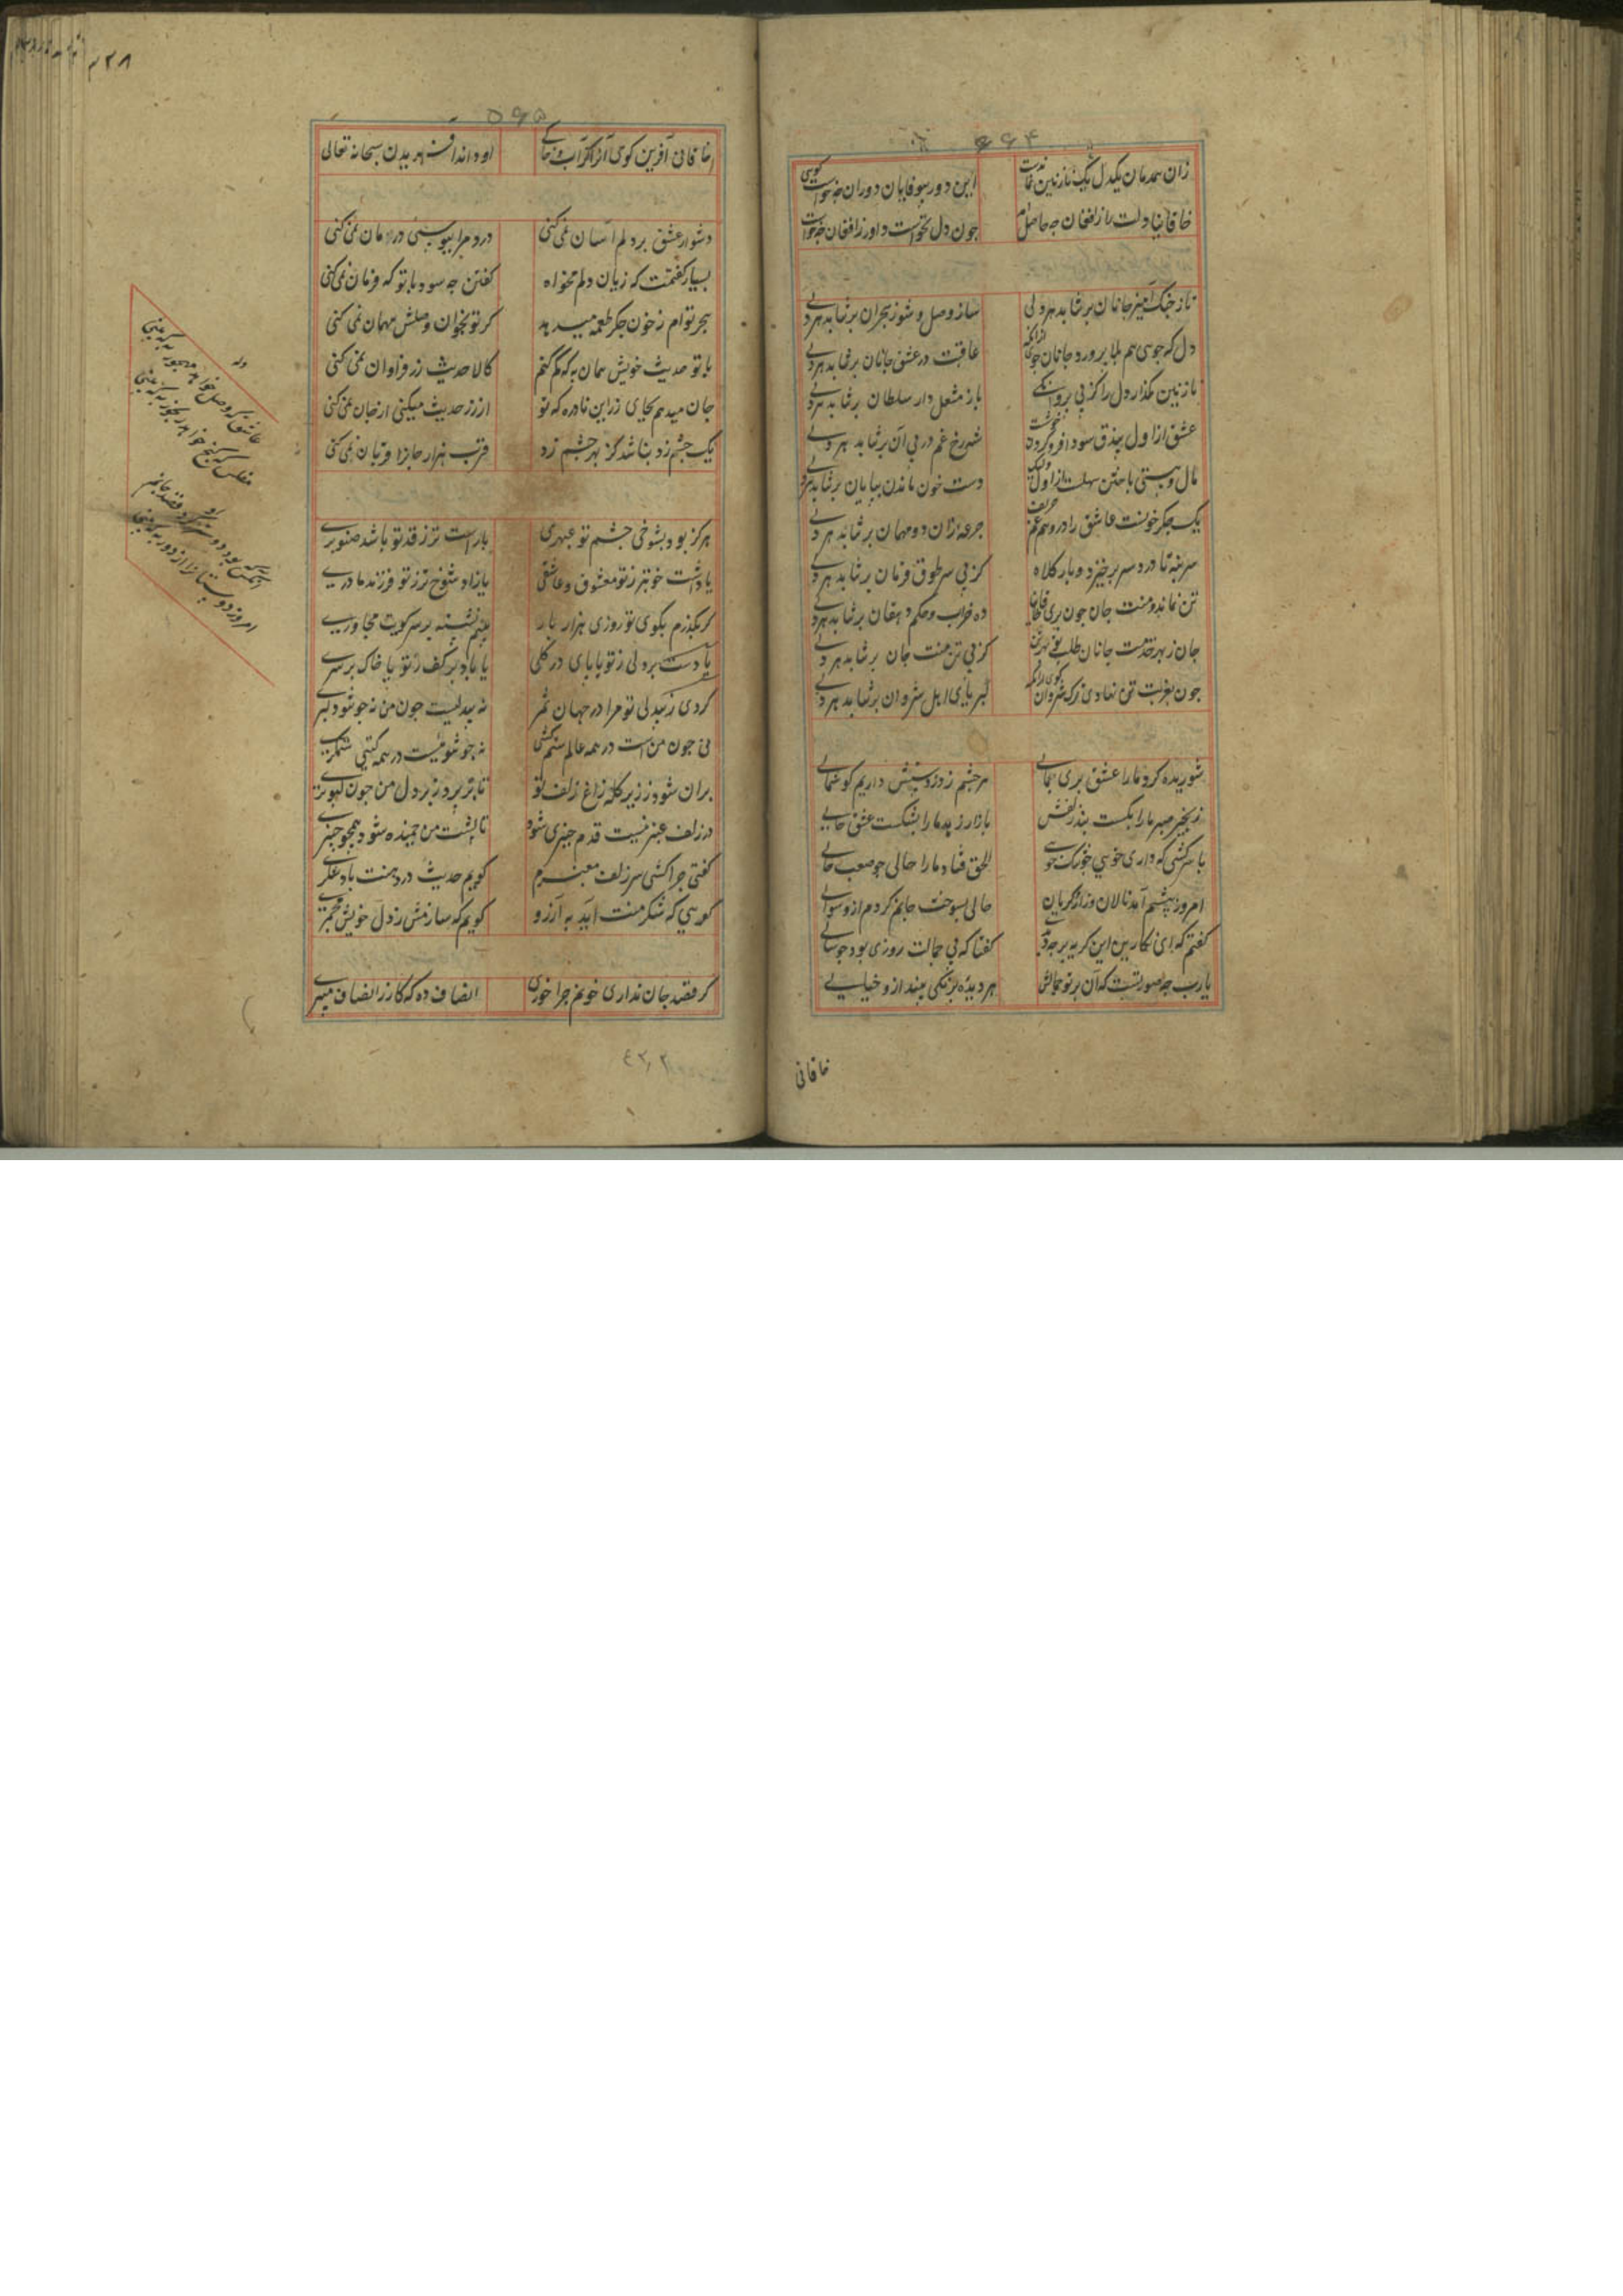 ۶۶۴
زان همدمان یکدل یک نازنین نماندست این دور بیوفایان دوران چه خواست گویی
خاقانیا دلت را ز افغان چه حاصل چون دل نخواست داور ز افغان چه خواست
ناز جنگ آمیز جانان برنتابد هر دلی ساز وصل و سوز هجران برنتابد هر دلی
دل که جوسی هم بلا پرورد جانان جوی ازانکه عافیت در عشق جانان برنتابد هر دلی
نازنین مگذار دل را کز پی پروانگی ناز مشعل دار سلطان برنتابد هر دلی
عشق از اول بیذق سودا فرو کردن خوشست شهرخ غم در پی آن برنتابد هر دلی
مال و هستی باختن سهلست از اول ولیک دست خون ماندن بپایان برنتابد هر دلی
یک جگر خونست عاشق را در و هم غم حریف جرعه زان دو میهمان برنتابد هر دلی
سر بنه تا درد سر برخیزد و بار کلاه کز پی سر طوق فرمان برنتابد هر دلی
تن نماند و منت جان چون بری خاقانیا ده خراب و حکم دهقان برنتابد هر دلی
جان ز بهر خدمت جانان طلب نه بهر تن کز پی تن منت جان برنتابد هر دلی
چون بغربت تن نهادی ترک شروان گوی زانکه کبریای اهل شروان برنتابد هر دلی
شوریده کرد ما را عشق پری جمالی هر چشم زد ز دستش داریم گوشمالی
زنجیر صبر ما را بگسست بند زلفش بازار زهد ما را بشکست عشق خالی
با سرکشی که داری خویی چه تندخویی الحق فتاد ما را حالی چه صعب حالی
امروز پیشم آمد نالان و زار و گریان حالی بسوخت جانم کردم ازو سوالی
گفتم که ای نگارین این گریه بر چه داری گفتا که بی جمالت روزی بود چو سالی
یارب چه صورتست که آن پرتو جمالش هر دیده برنگی بیند ازو خیالی
خاقانی
۴۳۸
۵۶۵
خاقانی آفرین گوی آنرا کز آب و خاکی او داند آفریدن سبحانه تعالی
دشوار عشق بر دلم آسان نمی کنی درد مرا ببوسی درمان نمی کنی
بسیار گفتمت که زیان دلم مخواه گفتن چه سود با تو که فرمان نمی کنی
هجر توام ز خون جگر طعمه میدهد گر تو بخوان وصلش مهمان نمی کنی
با تو حدیث خویش همان به که کم کنم کالا حدیث زر فراوان نمی کنی
جان میدهم بجای زر این نادره که تو از زر حدیث میکنی از جان نمی کنی
یک چشم زد نباشد کز بهر چشم زد قرب هزار جان را قربان نمی کنی
هرگز بود بشوخی چشم تو عبهری یا راست تر ز قد تو باشد صنوبری
یا داشت خوبتر ز تو معشوق عاشقی یا زاد شوخ تر ز تو فرزند مادری
گر بگذرم بکوی تو روزی هزار بار بینم نشسته بر سر کویت مجاوری
یا دست بر دلی ز تو یا پای در گلی یا باد بر کف ز تو یا خاک بر سری
کردی ز بیدلی تو مرا در جهان سمر نه بیدلیست چون من نه چو تو دلبری
نی چون من است در همه عالم ستم کشی نه چو تو نیست در همه گیتی ستمگری
بران شود ز زیر کله زاغ زلف تو تا برپرد ز بر دل من چون کبوتری
در زلف عنبرینت قدم چنبری شود تا پشت من خمیده شود همچو چنبری
گفتی چرا کشی سر زلف معنبرم گویم حدیث در دهنت باد شکری
گویی که شکر منت آید به آرزو گویم که سازمش ز دل خویش مجمری
گر قصد جان نداری خونم چرا خوری انصاف ده که کار ز انصاف میبری
وله
عاشق که وصل خواهد مهجور به که بینی
مفلس که گنج خواهد رنجور به که بینی
امروز دوستان را از دور به که بینی